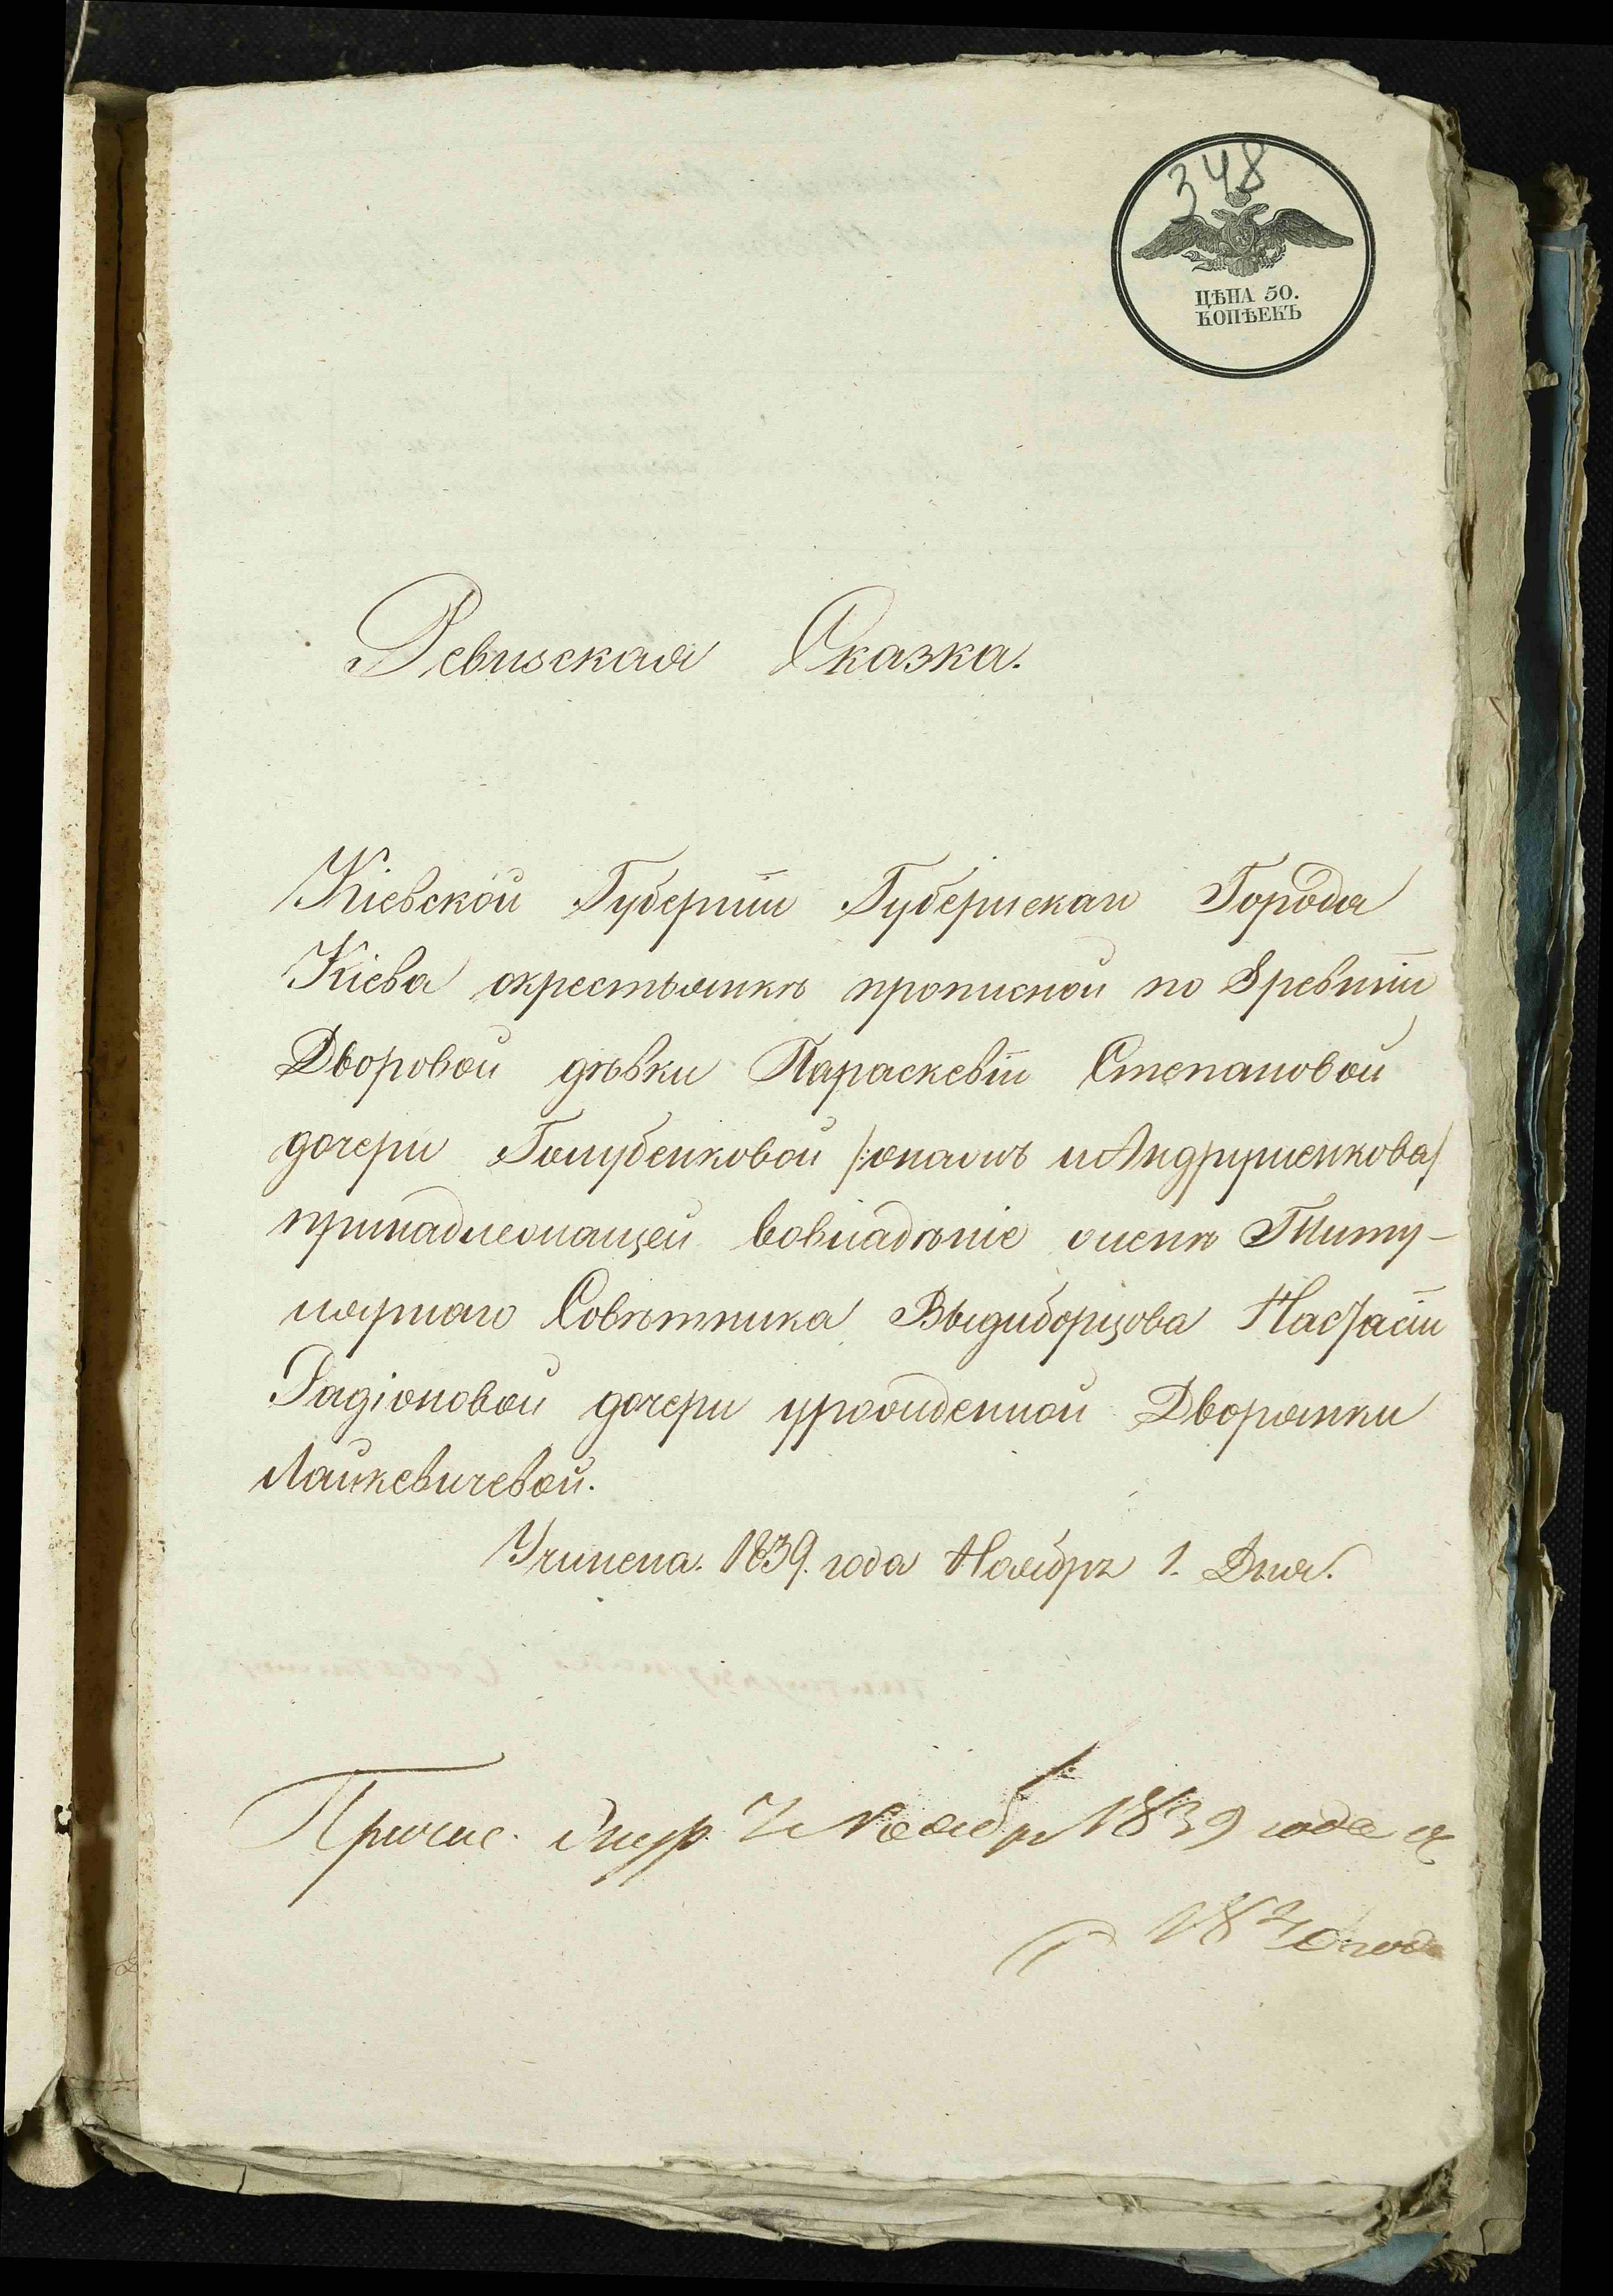 348
ЦѢНА 50.
КОПѢЕКЪ
Ревизская Сказка.
Кіевской Губерніи Губернскаго Города
Кіева окрестьянкѣ прописной по 8 ревизіи
Дворовой дѣвки Параскевіи Степановой
дочери Голубенковой /:онаожъ и Андрушенкова/
принадлежащей вовладѣніе женѣ Титу-
лярнаго Совѣтника Выдиборцова Настасіи
Радіоновой дочери урожденной Дворянки
Лайкевичевой.
Учинена. 1839. года Ноября 1. Дня.
7 Ноября 1839 года